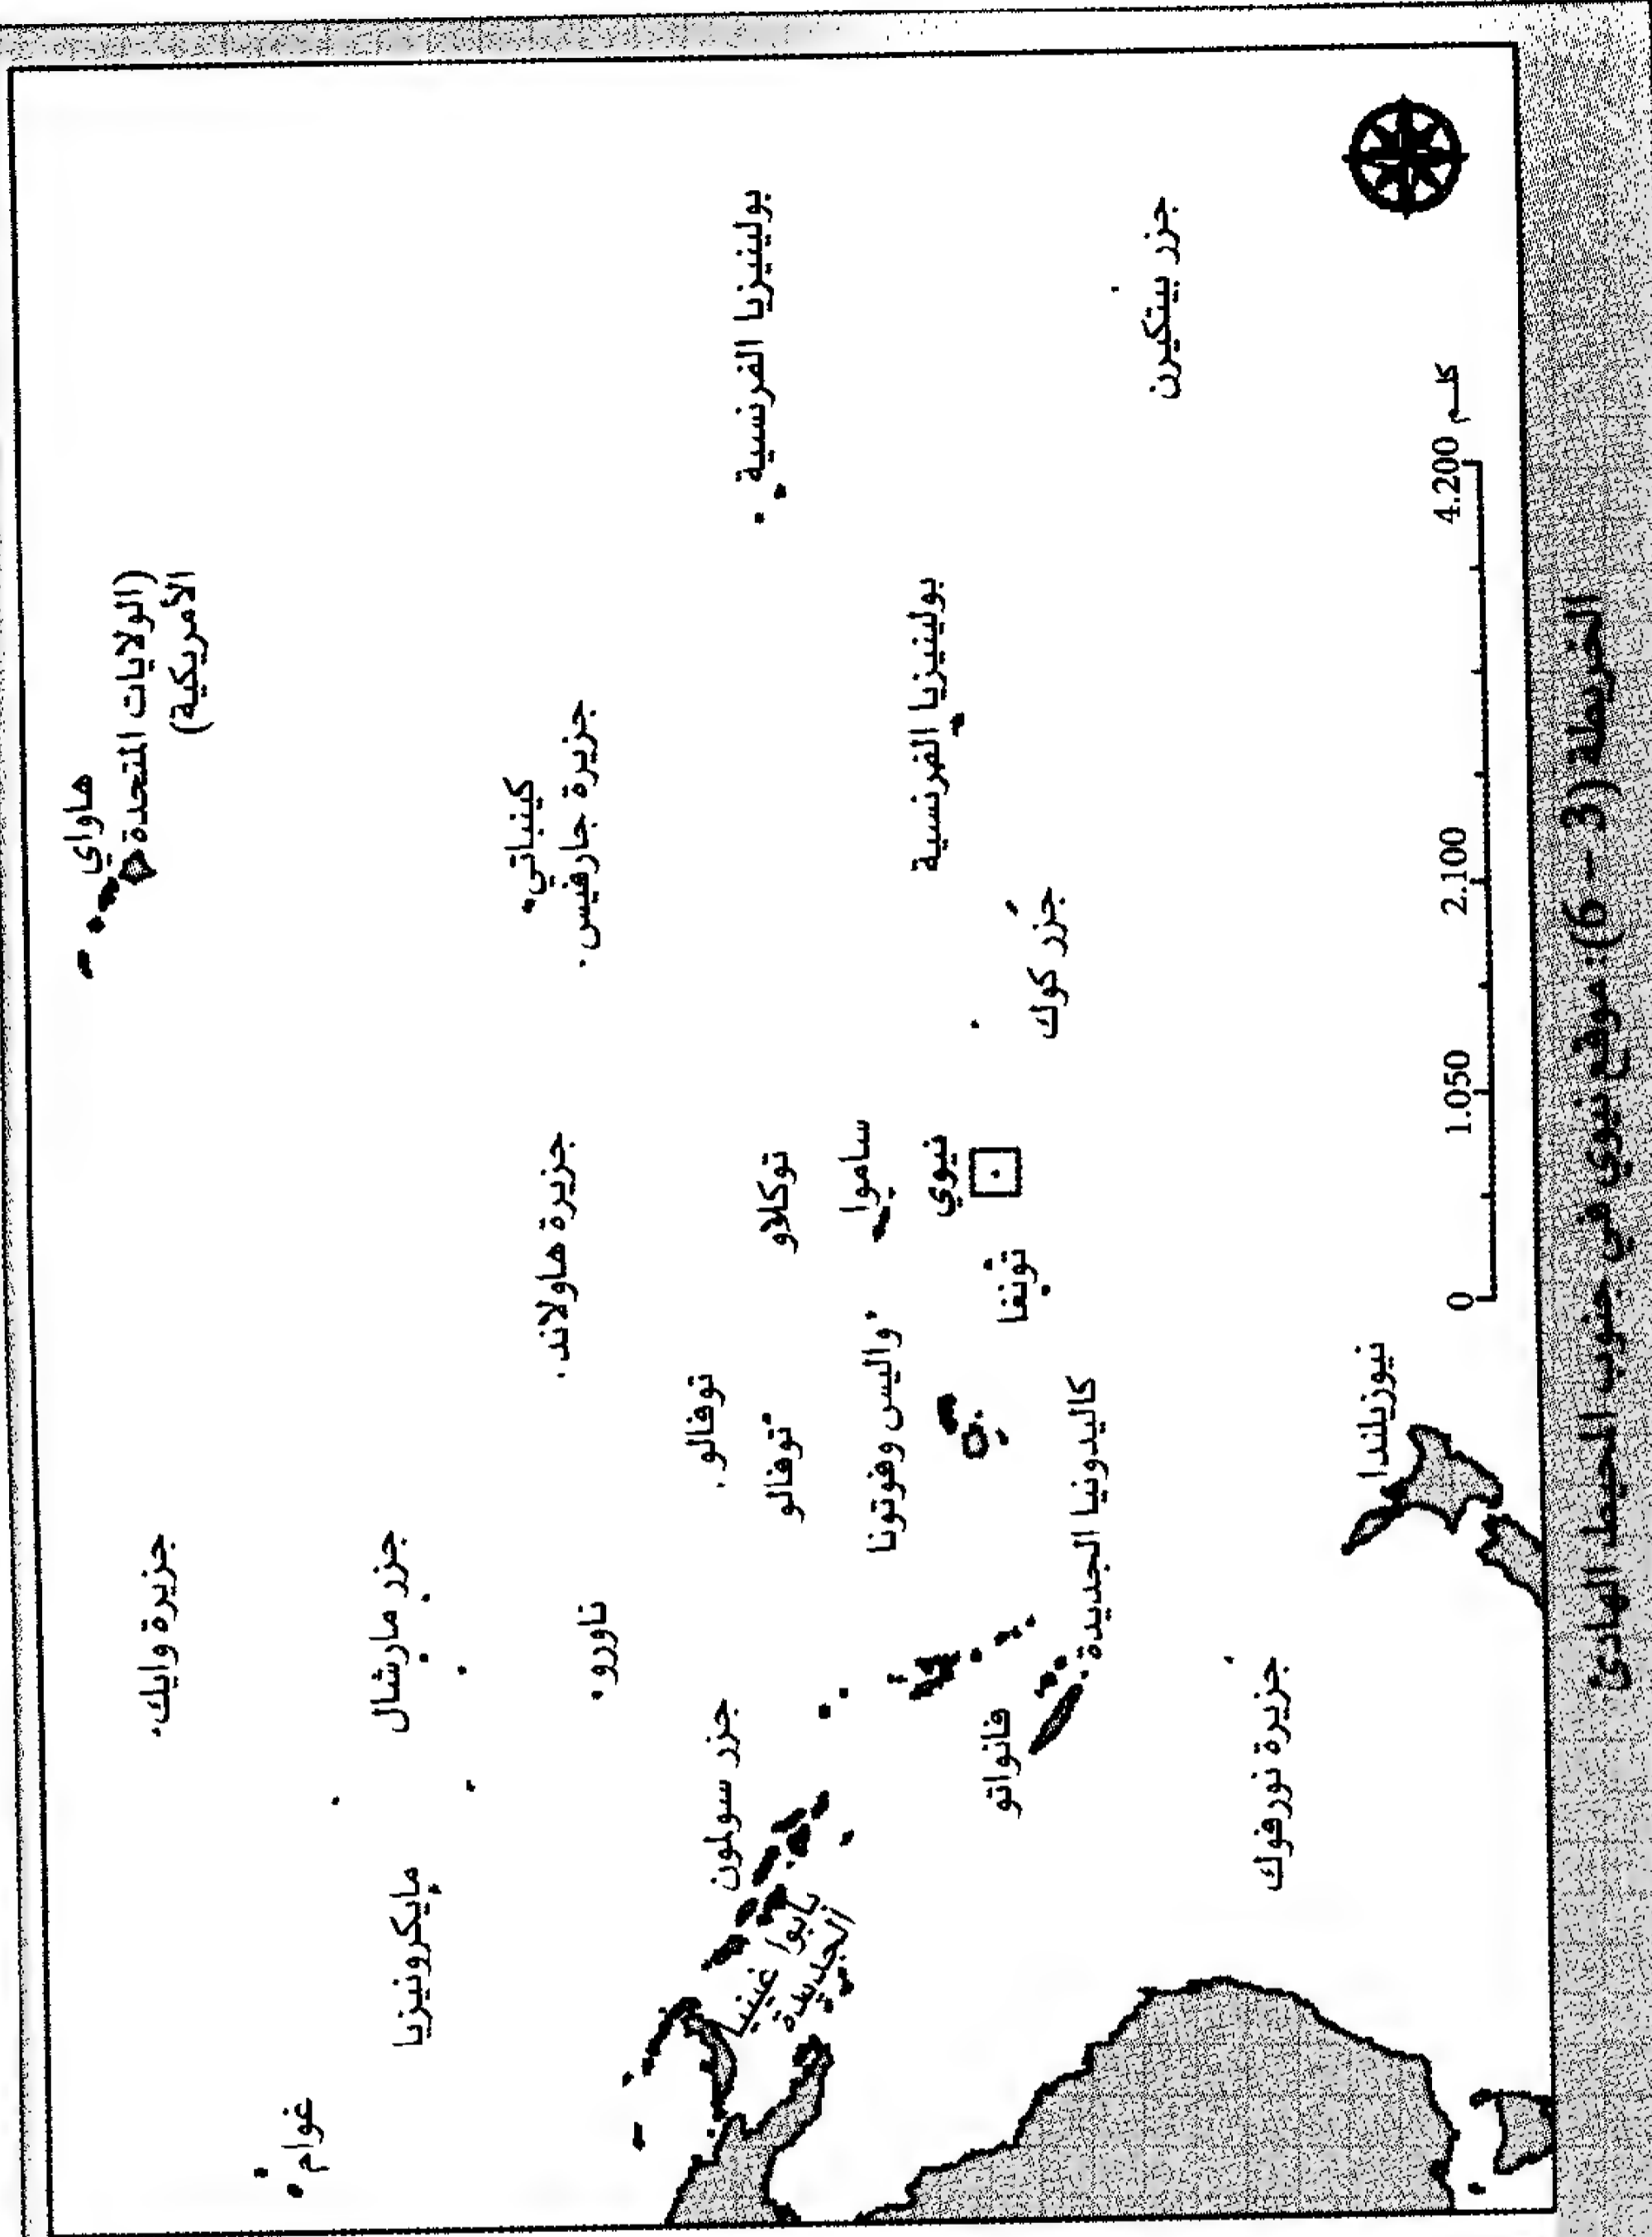 هاواي
(الولايات المتحدة
الأمريكية)
جزيرة وايك
غوام
جزر مارشال
مايكرونيزيا
كينباتي
جزيرة جارفيس
جزيرة هاولاند
ناورو
توفالو
جزر سولمون
بولينيزيا الفرنسية
توكلاو
توفالو
بابوا غينيا
الجديدة
ساموا
واليس وفوتونا
بولينيزيا الفرنسية
نيوي
تونغا
فانواتو
جزر كوك
كاليدونيا الجديدة
جزر بيتكيرن
جزيرة نورفوك
نيوزيلندا
0 1.050 2.100 4.200 كلم
الخريطة (3 - 6): موقع نيوي في جنوب المحيط الهادئ